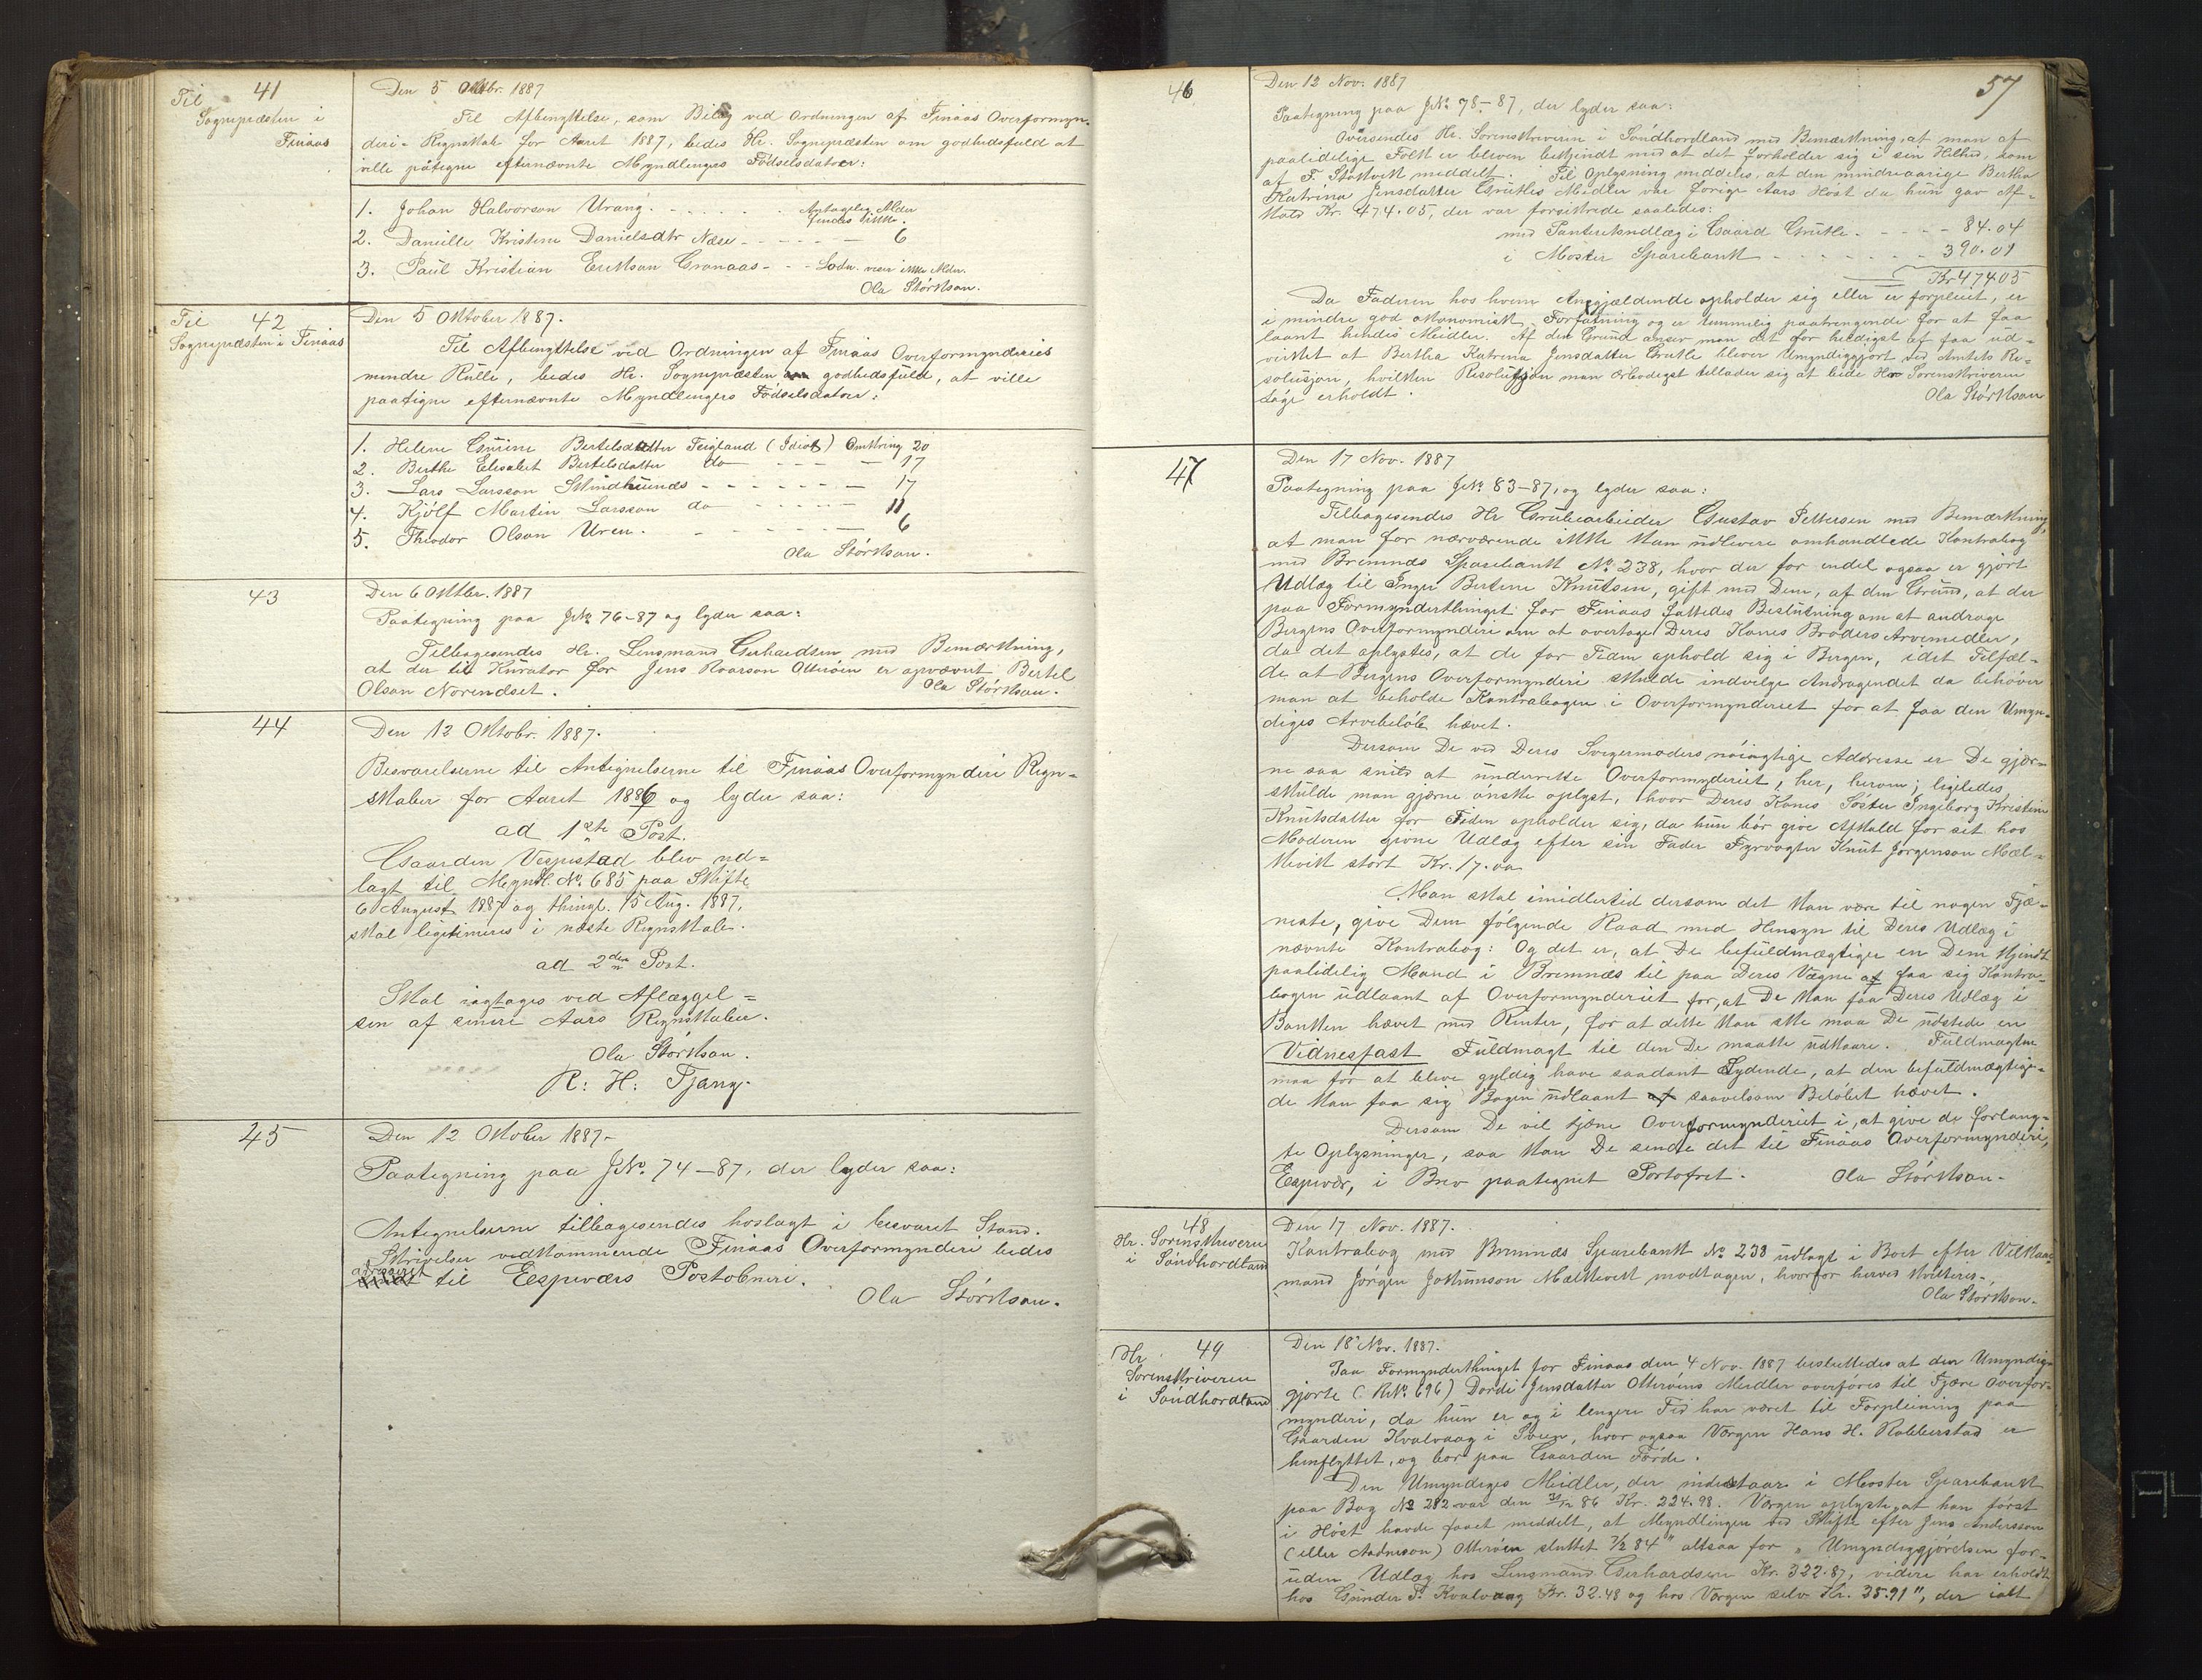 Til 41
Sognepræsten i
Finaas
Den 5 Oktbr. 1887
Til Afbenyttelse, som Bilag ved Ordningen af Finaas Overformyn-
deri-Regnskab for Aaret 1887, bedes Hr. Sognepræsten om godhedsfuld at
ville påtegne efternævnte Myndlinges Födselsdatoer:
1. Johan Halvorson Urang. - - - - - Antagelig Alder
findes ikke.
2. Danielle Kristine Danielsdtr Næse - - - - - 6
3. Paul Kristian Erikson Gronaas - - - ikke Alder.
Ola Störkson.
Til 42
Sognepræsten i Finaas
Den 5 Oktober 1887.
Til Afbenyttelse ved Ordningen af Finaas Overformynderies
mindre Rulle, bedes Hr. Sognepræsten godhedsfuld, at ville
paategne efternævnte Myndlingers Födselsdatoer:
1. Helene Gurine Bertelsdatter Teigland (Idiot) Omkring 20
2. Berthe Elisabet Bertelsdatter do - - - - 17
3. Lars Larsson - - - - - - 17
4. Kjölf Martin Larsson do - - - - 11
5. Theodor Olson Uren. - - - - - 6
Ola Störkson.
43
Den 6 Oktbr. 1887
Paategning paa JNo 76-87 og lyder saa:
Tilbagesendes Hr. Lensmand Gerhardsen med Bemærkning,
at der til Kurator for Jens Roarson Otteröen er opnævnt Bertel
Olson Norendset.
Ola Störkson.
44
Den 12 Oktobr. 1887.
Besvarelserne til Antegnelserne til Finaas Overformynderi Regn-
skaber for Aaret 1886 og lyder saa:
ad 1ste Post.
Gaarden Vespestad blev ud=
lagt til Myndl. No. 685 paa Skifte
6 August 1887 og thingl. 15 Aug. 1887,
skal legitimeres i næste Regnskab.
ad 2den Post.
Skal iagtages ved Aflæggel=
sen af senere Aars Regnskaber.
Ola Störkson.
R: H: Tjang.
45
Den 12 Oktober 1887-
Paategning paa JNo. 74-87, der lyder saa:
Antegnelserne tilbagesendes hoslagt i besvaret Stand.
Skrivelser vedkommende Finaas Overformynderi bedes
adresseret til Espeværs Postobneri.
Ola Störkson.
57
46
Den 12 Nov. 1887
Paategning paa JNo 78-87, der lyder saa:
Oversendes Hr. Sorenskriveren i Söndhordland med Bemærkning, at man af
paalidelige Folk er bleven bekjendt med at det forholder sig i sin Helhed, som
af T. Stokvik meddelt. Til Oplysning meddeles, at den mindreaarige Bertha
Katrina Jensdatter Grutles Midler var forige Aars Höst da hun gav Af-
kald Kr. 474.05, der var forsikrede saaledes:
med Panteretsudlæg i Gaard Grutle. - - - - 84.04
i Moster Sparebank - - - - - - 390.01
Kr 474.05
Da Faderen hos hvem Angjældende opholder sig eller er forpleiet, er
i mindre god økonomisk Forfatning og er temmelig paatrengende for at faa
laant hendes Meidler. Af den Grund anser man det for heldigst at faa ud-
virket at Bertha Katrina Jensdatter Grutle bliver umyndiggjort ved Amtets Re-
solusjon, hvilken Resolusjon man ærbødigst tillader sig at bede Hr Sorenskriveren
tage erholdt.
Ola Störkson
47
Den 17 Nov. 1887
Paategning paa JNo. 83-87, og lyder saa:
Tilbagesendes Hr Grubearbeider Gustav Pettersen med Bemærkning,
at man for nærværende ikke kan udlevere omhandlede Kontrabog
med Bremnæs Sparebank No. 238, hvor der for endel ogsaa er gjort
Udlæg til Inger Bertine Knutsen, gift med Dem, af den Grund, at der
paa Formynderthinget for Finaas fattedes Beslutning om at andrage
Bergens Overformynderi om at overtage Deres Kones Bröders Arvemidler,
da det oplystes, at de for Tiden ophold sig i Bergen, i det Tilfæl-
de at Bergens Overformynderi skulde indvilge Andragendet da behöver
man at beholde Kontrabogen i Overformynderiet for at faa den Umyn-
diges Arvebelöb hævet.
Dersom De ved Deres Svigermoders nöiagtige Addresse er De gjær-
ne saa snild at underrette Overformynderiet, her, herom; ligeledes
skulde man gjærne önske oplyst, hvor Deres Kones Söster Ingeborg Kristine
Knutsdatter for Tiden opholder sig, da hun bör give Afkald for sit hos
Moderen givne Udlæg efter sin Fader Fyrvogter Knut Jörgenson Mæl-
kevik stort Kr. 17.00
Man skal imidlertid dersom det kan være til nogen Tjæ-
neste, give Dem fölgende Raad med Hensyn til Deres Udlæg i
nævnte Kontrabog: Og det er, at De befuldmægtiger en Dem kjendt
paalidelig Mand i Bremnæs til paa Deres Vegne at faa sig Kontra-
bogen udlaant af Overformynderiet for, at De kan faa Deres Udlæg i
Banken hævet med Renter, for at dette kan ske maa De udstede en
Vidnesfast Fuldmagt til den De maatte udkaare. Fuldmagten
maa for at blive gyldig have saadant Lydende, at den befuldmægtige-
de kan faa sig Bogen udlaant saavelsom Belöbet hævet.
Dersom De vil tjæne Overformynderiet i, at give de forlang-
te Oplysninger, saa kan De sende det til Finaas Overformynderi,
Espevær, i Brev paategnet Portofrit.
Ola Störkson.
48
Hr. Sorenskriveren
i Söndhordland
Den 17 Nov. 1887.
Kontrabog med Bremnæs Sparebank No 238 udlagt i Boet efter Vilkaar-
mand Jörgen Jokumson Mælkevik modtagen, hvorfor herved kvitteres.
Ola Störkson.
Hr 49
Sorenskriveren
i Söndhordland
Den 18 Nov. 1887.
Paa Formynderthinget for Finaas den 4 Nov. 1887 besluttedes at den Umyndig-
gjorte (RNo. 696) Dordi Jensdatter Otteröens Meidler overföres til Fjære Overfor-
mynderi, da hun er og i lengere Tid har været til Forpleining paa
Gaarden Kvalvaag i Sveen, hvor ogsaa Værgen Hans H. Robberstad er
henflyttet, og bor paa Gaarden Förde.
Den Umyndiges Meidler, der indestaar i Moster Sparebank
paa Bog No 212 var den 31/12 86 Kr. 224.98. Værgen oplyste at han först
i Höst havde faaet meddelt, at Myndlingen ved Skifte efter Jens Andersson
(eller Aadneson) Otteröen sluttet 7/2 84 altsaa för Umyndiggjörelsen for-
uden Udlæg hos Lensmand Gerhardsen Kr. 322.87, videre har erholdt
hos Gunder P. Kvalvaag Kr. 32.48 og hos Værgen selv Kr. 35.91", der ialt